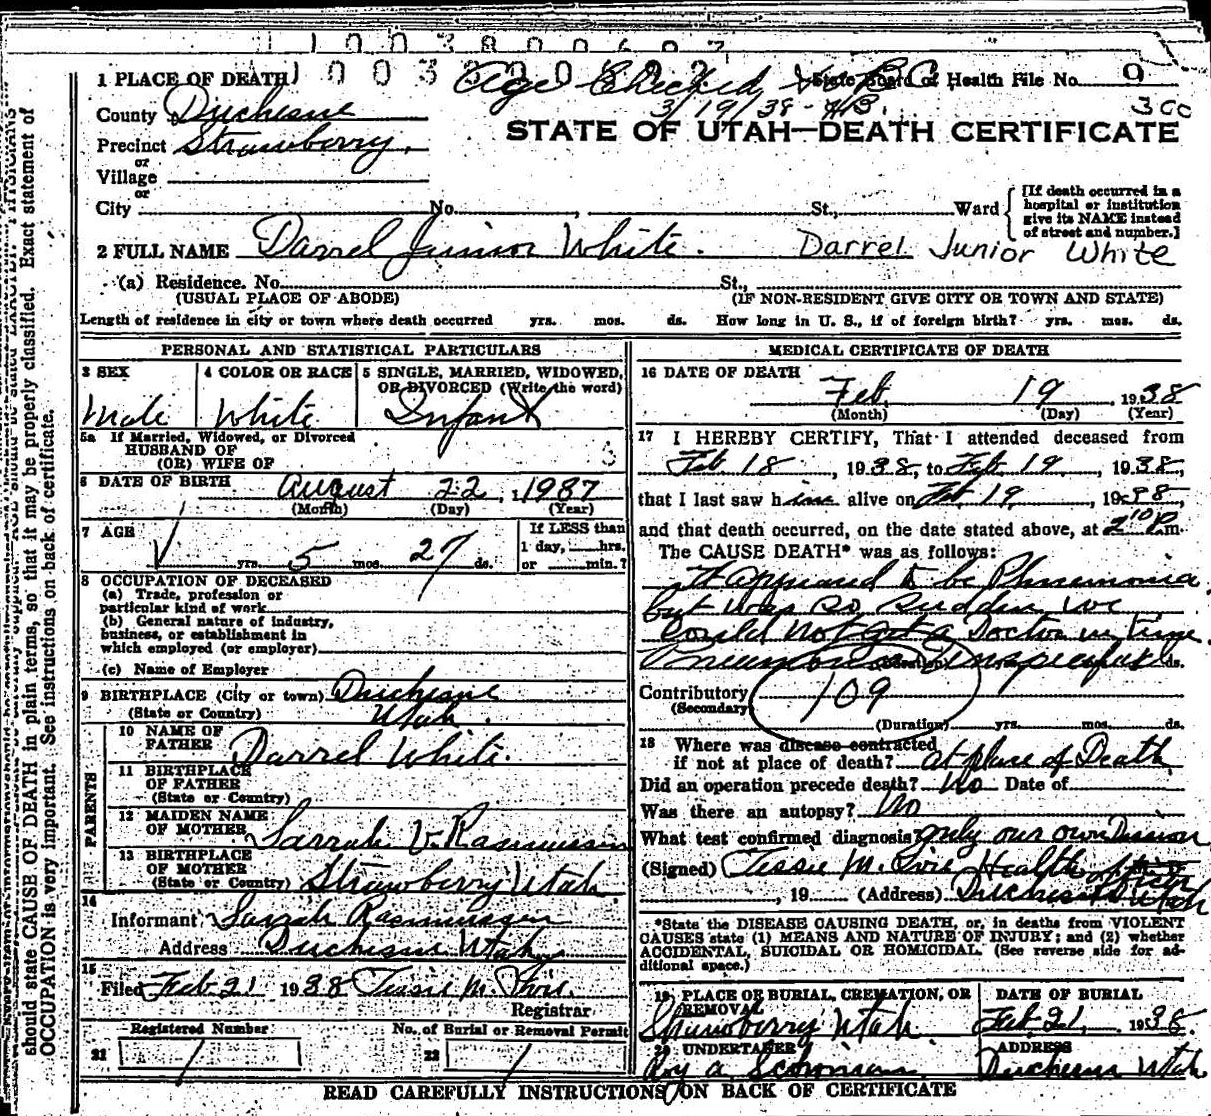 1 PLACE OF DEATH
Age Checked by B.C.
State Board of Health File No. 9
3/19/38 - HB.
300
County Duchesne
STATE OF UTAH—DEATH CERTIFICATE
Precinct Strawberry.
or
Village
or
City No. , St., Ward
[If death occurred in a hospital or institution give its NAME instead of street and number.]
2 FULL NAME Darrel Junior White. Darrel Junior White
(a) Residence. No. St.,
(USUAL PLACE OF ABODE) (IF NON-RESIDENT GIVE CITY OR TOWN AND STATE)
Length of residence in city or town where death occurred yrs. mos. ds. How long in U. S., if of foreign birth? yrs. mos. ds.
PERSONAL AND STATISTICAL PARTICULARS
3 SEX 4 COLOR OR RACE 5 SINGLE, MARRIED, WIDOWED,
OR DIVORCED (Write the word)
Male White Infant
5a If Married, Widowed, or Divorced
HUSBAND OF
(OR) WIFE OF
6 DATE OF BIRTH August 22, 1937
(Month) (Day) (Year)
7 AGE
If LESS than
1 day, hrs.
or min.?
yrs. 5 mos. 27 ds.
8 OCCUPATION OF DECEASED
(a) Trade, profession or
particular kind of work
(b) General nature of industry,
business, or establishment in
which employed (or employer)
(c) Name of Employer
9 BIRTHPLACE (City or town) Duchesne
(State or Country) Utah.
PARENTS
10 NAME OF
FATHER Darrel White.
11 BIRTHPLACE
OF FATHER
(State or Country)
12 MAIDEN NAME
OF MOTHER Sarrah V. Rasmussen
13 BIRTHPLACE
OF MOTHER
(State or Country) Strawberry Utah
14
Informant Sarrah Rasmussen
Address Duchesne Utah
15
Filed Feb 21 1938 Tessie M.
Registrar
Registered Number No. of Burial or Removal Permit
21 1 22 1
MEDICAL CERTIFICATE OF DEATH
16 DATE OF DEATH
Feb. 19 1938
(Month) (Day) (Year)
17 I HEREBY CERTIFY, That I attended deceased from
Feb 18, 1938, to Feb 19, 1938,
that I last saw him alive on Feb 19, 1938,
and that death occurred, on the date stated above, at 2 10 P.m.
The CAUSE DEATH* was as follows:
It appeared to be Phnemonia
but was so sudden we
Could not get a Doctor in time
Pneumonia Unspecified ds.
Contributory 109
(Secondary)
(Duration) yrs. mos. ds.
18 Where was disease contracted
if not at place of death? at place of Death
Did an operation precede death? No Date of
Was there an autopsy? No
What test confirmed diagnosis? only our own
(Signed) Tessie M. Health
, 19 (Address) Duchesne Utah
*State the DISEASE CAUSING DEATH, or, in deaths from VIOLENT
CAUSES state (1) MEANS AND NATURE OF INJURY; and (2) whether
ACCIDENTAL, SUICIDAL OR HOMICIDAL. (See reverse side for ad-
ditional space.)
19 PLACE OF BURIAL, CREMATION, OR
REMOVAL
DATE OF BURIAL
Strawberry Utah. Feb 21, 1938
20 UNDERTAKER ADDRESS
Roy A Duchesne Utah
READ CAREFULLY INSTRUCTIONS ON BACK OF CERTIFICATE
should state CAUSE OF DEATH in plain terms, so that it may be properly classified. Exact statement of
OCCUPATION is very important. See instructions on back of certificate.